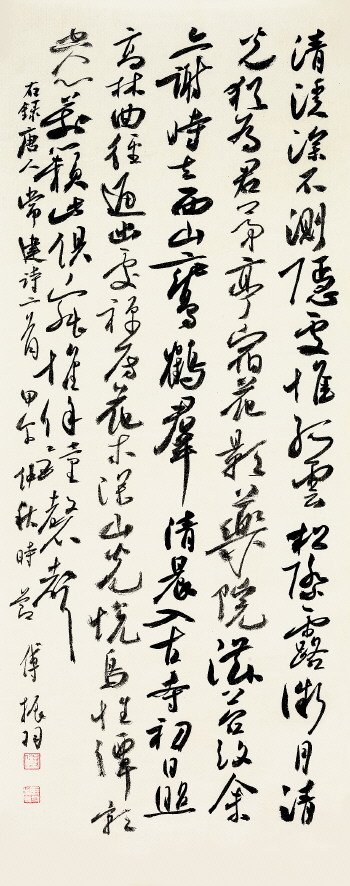 清溪深不測隱處惟孤雲松際露微月清
光猶為君茅亭宿花影藥院滋苔紋余
亦謝時去西山鸞鶴群清晨入古寺初日照
高林曲徑通幽處禪房花木深山光悅鳥性潭影
空人心萬籟此俱寂惟餘鐘磬聲
右錄唐人常建詩二首 甲午仲秋時節 傅振羽